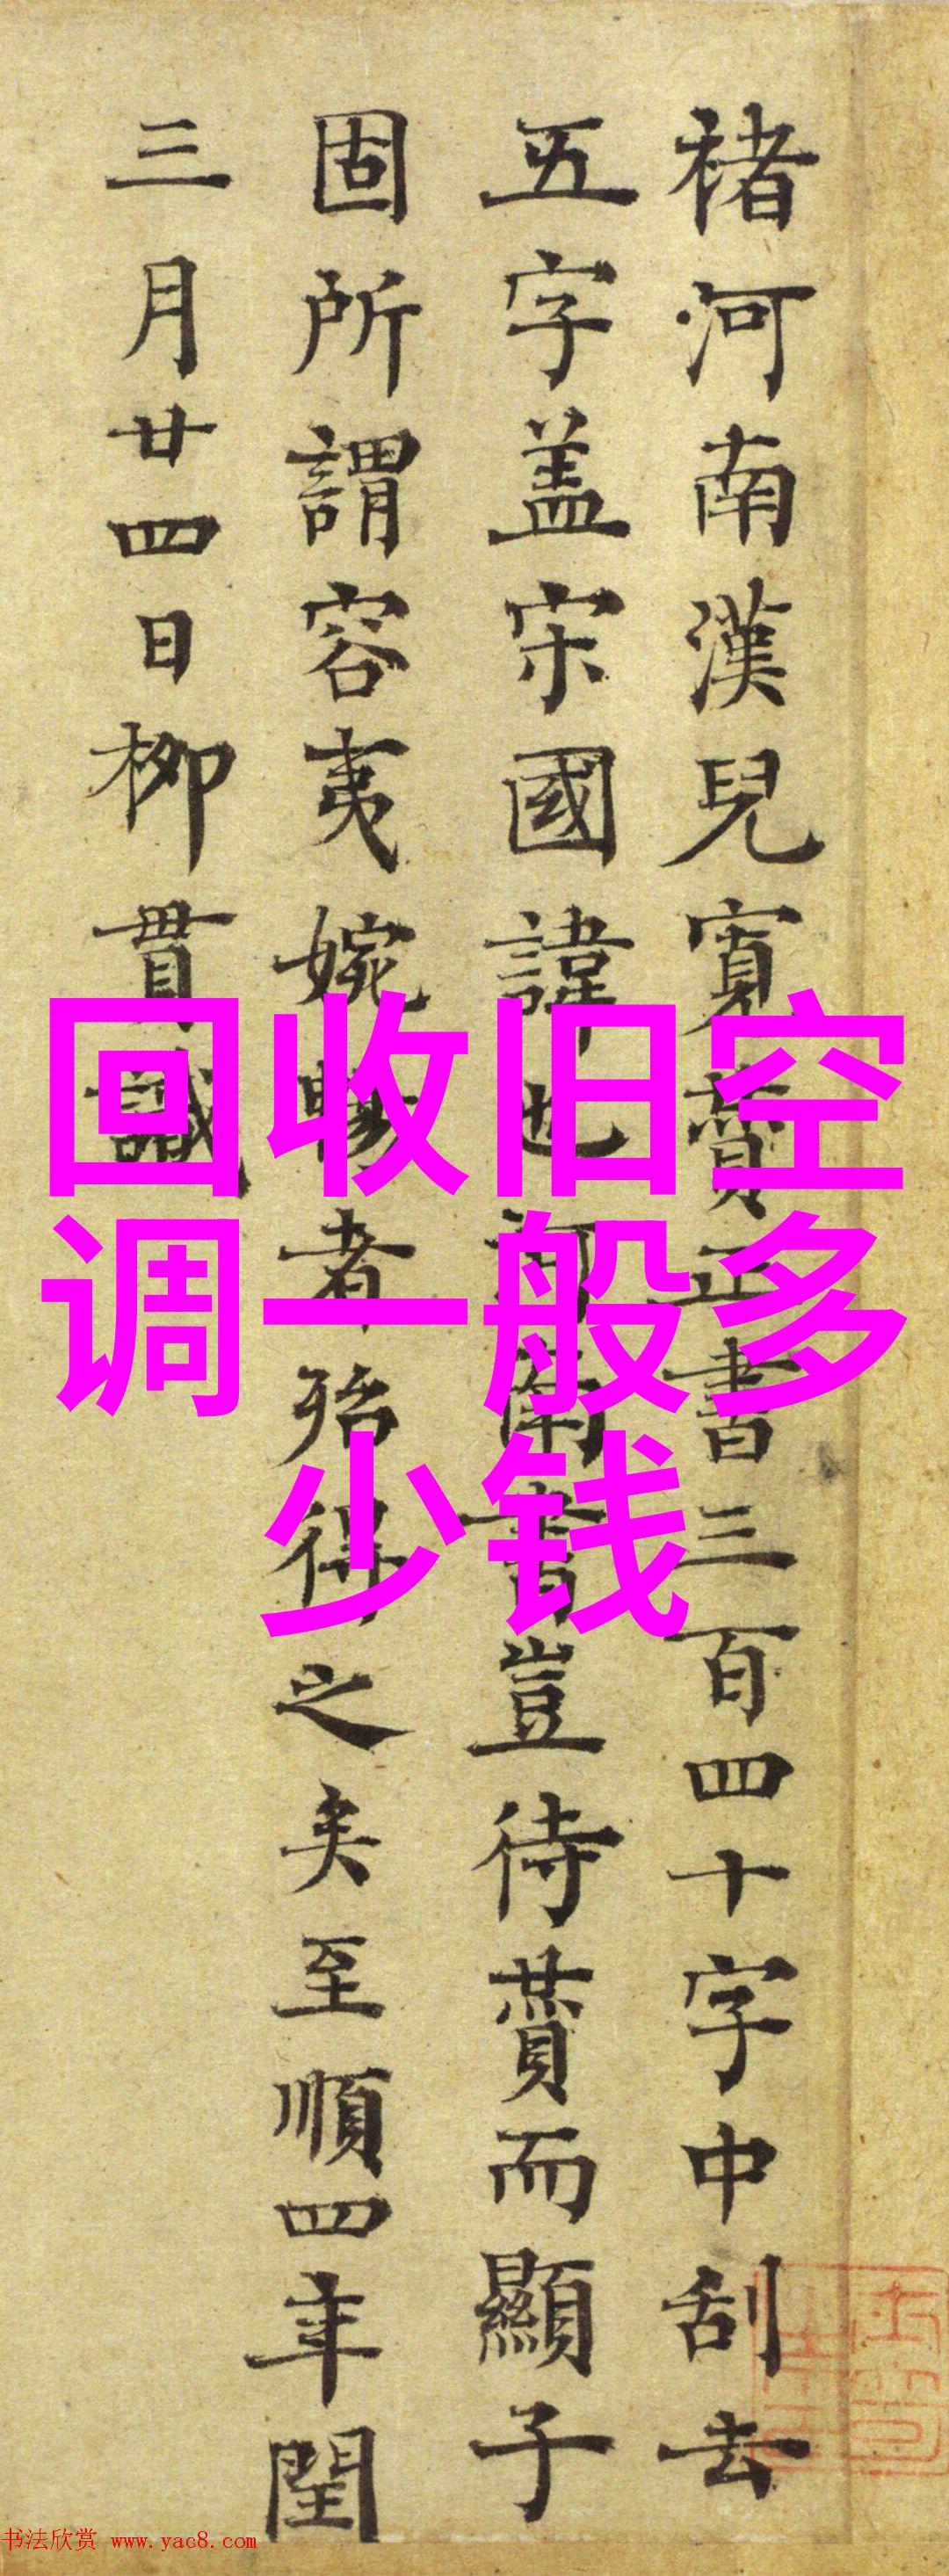 褚河南漢兒寬贊正書三百四十字中刮去
五字盖宋國諱也河南書豈待贊而顯子
固所謂容夷婉暢者殆得之矣至順四年閏
三月廿四日柳貫識
回收旧空
调一般多
少钱
书法欣赏 www.yac8.com